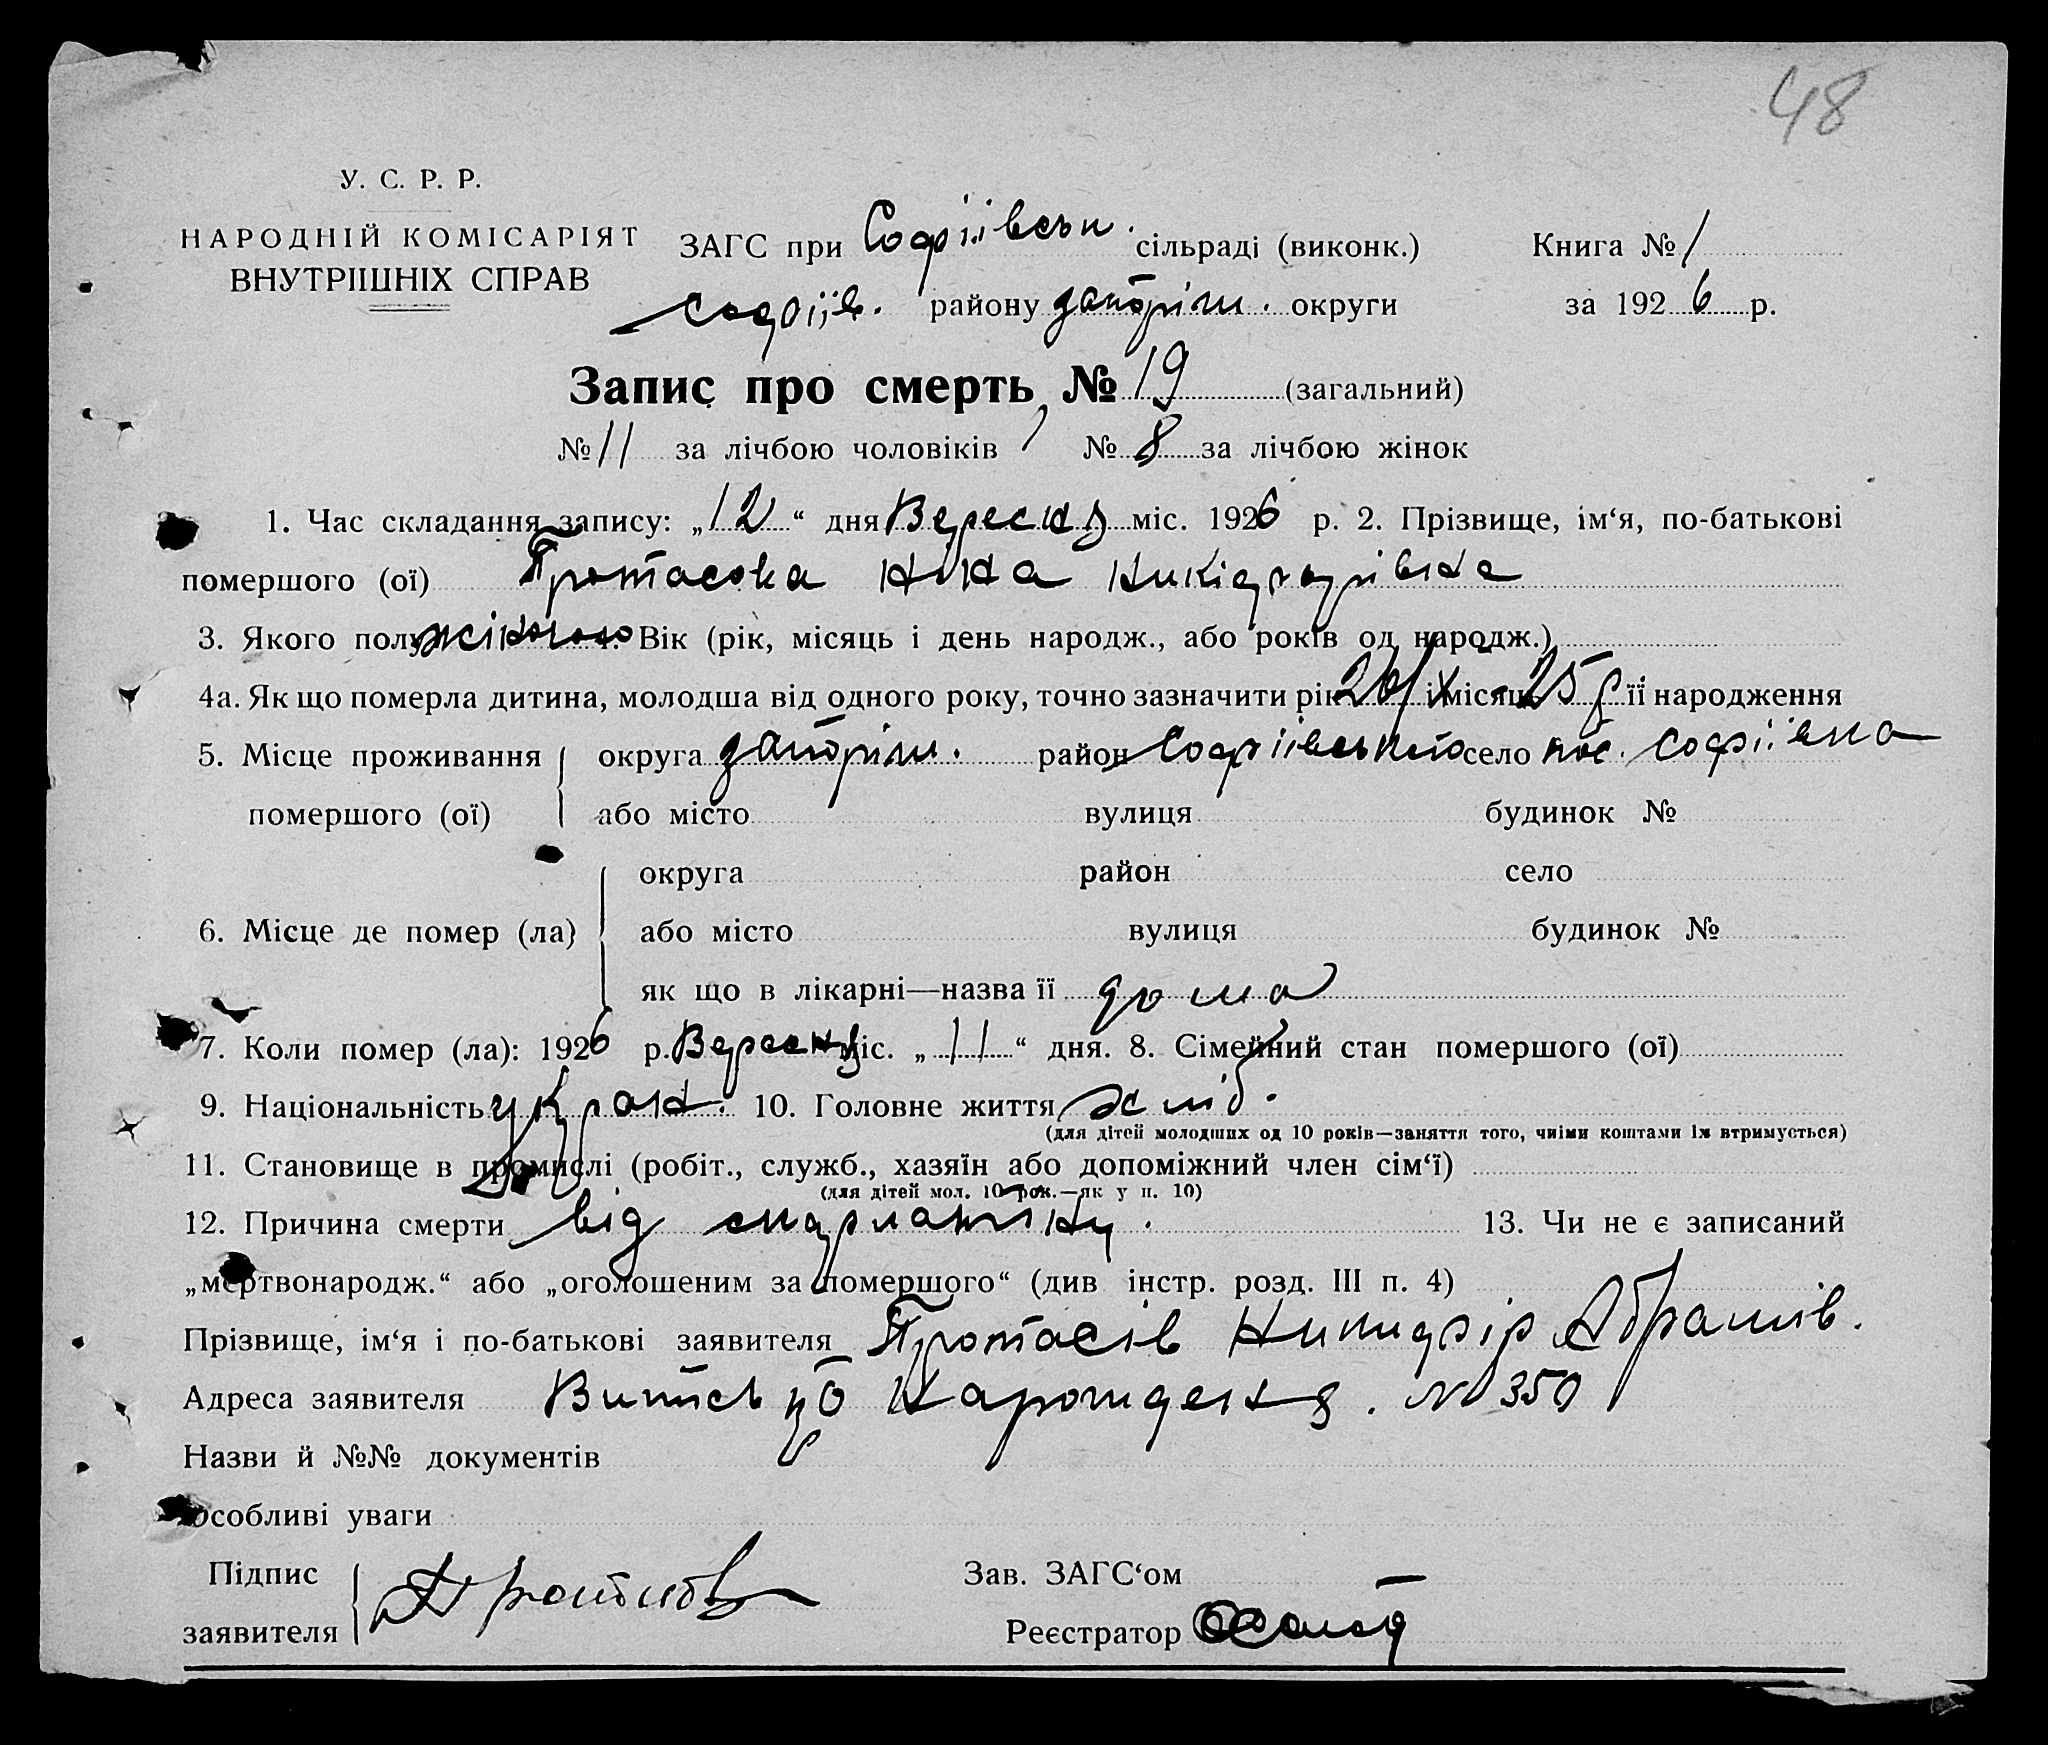 48
У. С. Р. Р.
НАРОДНІЙ КОМІСАРІЯТ
ВНУТРІШНІХ СПРАВ
ЗАГС при Софіївськ. сільраді (виконк.) Книга № 1
софіїв. району запоріж. округи за 1926 р.
Запис про смерть № 19 (загальний)
№ 11 за лічбою чоловіків № 8 за лічбою жінок
1. Час складання запису: „12“ дня Вересня міс. 1926 р. 2. Прізвище, ім‘я, по-батькові
помершого (ої) Протасова Ніна Никіфорівна
3. Якого полу жіночого 4. Вік (рік, місяць і день народж., або років од народж.)
4а. Як що померла дитина, молодша від одного року, точно зазначити рік і місяць її народження
5. Місце проживання округа запоріж. район Софіївського село пос. Софіївка
помершого (ої) або місто вулиця будинок №
округа район село
6. Місце де помер (ла) або місто вулиця будинок №
як що в лікарні—назва її дома
7. Коли помер (ла): 1926 р. Вересня міс. „11“ дня. 8. Сімейний стан помершого (ої)
9. Національність україн. 10. Головне життя хліб.
(для дітей молодших од 10 років—заняття того, чиїми коштами їх втримується)
11. Становище в промислі (робіт., служб., хазяїн або допоміжний член сім‘ї)
(для дітей мол. 10 рок.—як у п. 10)
12. Причина смерти від скарлатини. 13. Чи не є записаний
„мертвонародж.“ або „оголошеним за помершого“ (див інстр. розд. III п. 4)
Прізвище, ім‘я і по-батькові заявителя Протасів Никифір Абрамів.
Адреса заявителя Витсь про народження. № 350
Назви й №№ документів
Особливі уваги
Підпис Зав. ЗАГС‘ом
заявителя Реєстратор